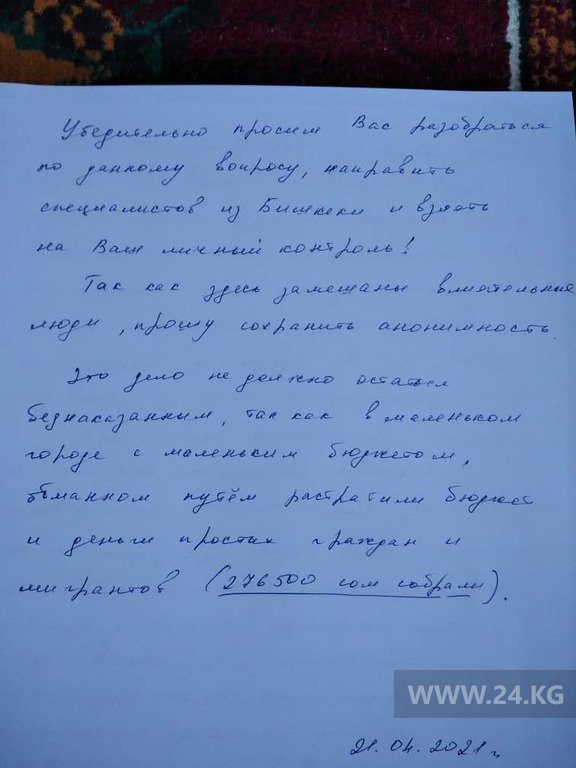 Убедительно просим Вас разобраться
по данному вопросу, направить
специалистов из Бишкека и взять
на Ваш личный контроль!
Так как здесь замешаны влиятельные
люди, прошу сохранить анонимность.
Это дело не должно остаться
безнаказанным, так как в маленьком
городе с маленьким бюджетом,
обманном путём растратили бюджет
и деньги простых граждан и
мигрантов (276500 сом собрали).
WWW.24.KG
21.04.2021 г